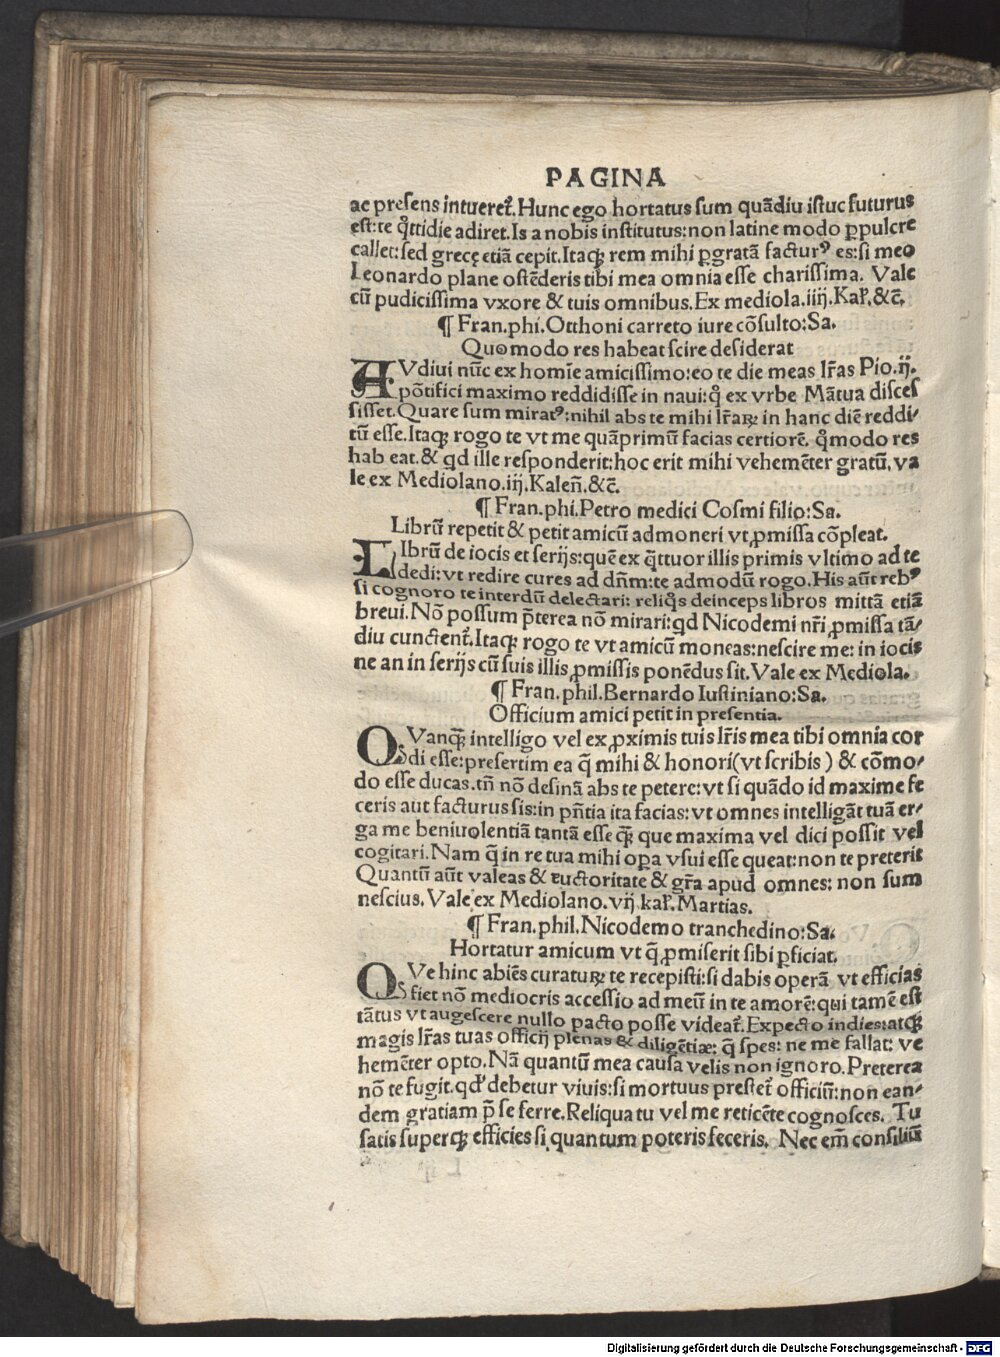 PAGINA
ac preſens intueret᷑.Hunc ego hortatus ſum quādiu iſtuc futurus
eſt:te qͦttidie adiret.Is a nobis inſtitutus:non latine modo ꝑpulcre
callet:ſed grecę etiā cepit.Itaqꝫ rem mihi ꝑgratā facturꝰ es:ſi meo
Leonardo plane oſtēderis tibi mea omnia eſſe chariſſima. Vale
cū pudiciſſima vxore & tuis omnibus.Ex mediola.iiij.Kal̓.&c̄.
¶ Fran.phi.Otthoni carreto iure cōſulto:Sa.
Quomodo res habeat ſcire deſiderat
AVdiui nūc ex homīe amiciſſimo:eo te die meas lr̄as Pio.ij.
pōtifici maximo reddidiſſe in naui:qͦ ex vrbe Mātua diſceſ
ſiſſet.Quare ſum miratꝰ:nihil abs te mihi lr̄aꝝ in hanc diē reddi/
tū eſſe.Itaqꝫ rogo te vt me quāprimū facias certiorē. qͦmodo res
hab eat.& qd ille reſponderit:hoc erit mihi vehemēter gratū.va
le ex Mediolano.iij.Kaleñ.&c̄.
¶ Fran.phi.Petro medici Coſmi filio:Sa.
Librū repetit & petit amicū admoneri vt ꝓmiſſa cōpleat.
LIbrū de iocis et ſerijs:quē ex qͣttuor illis primis vltimo ad te
dedi:vt redire cures ad dn̄m:te admodū rogo.His aūt rebꝰ
ſi cognoro te interdū delectari: reliqͦs deinceps libros mittā etiā
breui.Nō poſſum p̄terea nō mirari:qd Nicodemi nr̄i ꝓmiſſa tā/
diu cunctent᷑.Itaqꝫ rogo te vt amicū moneas:neſcire me: in iocis
ne an in ſerijs cū ſuis illis ꝓmiſſis ponēdus ſit.Vale ex Mediola.
¶ Fran.phil.Bernardo Iuſtiniano:Sa.
Officium amici petit in preſentia.
QVanqꝫ intelligo vel ex ꝓximis tuis lr̄is mea tibi omnia cor
di eſſe:preſertim ea q̄ mihi & honori(vt ſcribis) & cōmo/
do eſſe ducas.tn̄ nō deſinā abs te petere:vt ſi quādo id maxime fe
ceris aut facturus ſis:in pn̄tia ita facias:vt omnes intelligāt tuā er/
ga me beniuolentiā tantā eſſe qꝫ que maxima vel dici poſſit vel
cogitari.Nam q̄ in re tua mihi oꝑa vſui eſſe queat:non te preterit
Quantū aūt valeas & auctoritate & gr̄a apud omnes: non ſum
neſcius.Vale ex Mediolano.vij.kal̓.Martias.
¶ Fran.phil.Nicodemo tranchedino:Sa.
Hortatur amicum vt q̄ ꝓmiſerit ſibi ꝑficiat.
QVe hinc abiēs curaturꝝ te recepiſti:ſi dabis operā vt efficias
fiet nō mediocris acceſſio ad meū in te amorē:qui tamē eſt
tātus vt augeſcere nullo pacto poſſe videat᷑.Expecto indies:atqꝫ
magis lr̄as tuas officij plenas & diligētiæ: q̄ ſpes: ne me fallat: ve
hemēter opto.Nā quantū mea cauſa velis non ignoro.Preterea
nō te fugit.qd debetur viuis:ſi mortuus preſtet᷑ officiū:non ean/
dem gratiam p̄ ſe ferre.Reliqua tu vel me reticēte cognoſces. Tu
ſatis ſuperqꝫ efficies ſi quantum poteris feceris. Nec em̄ conſiliū
Digitalisierung gefördert durch die Deutsche Forschungsgemeinschaft - DFG